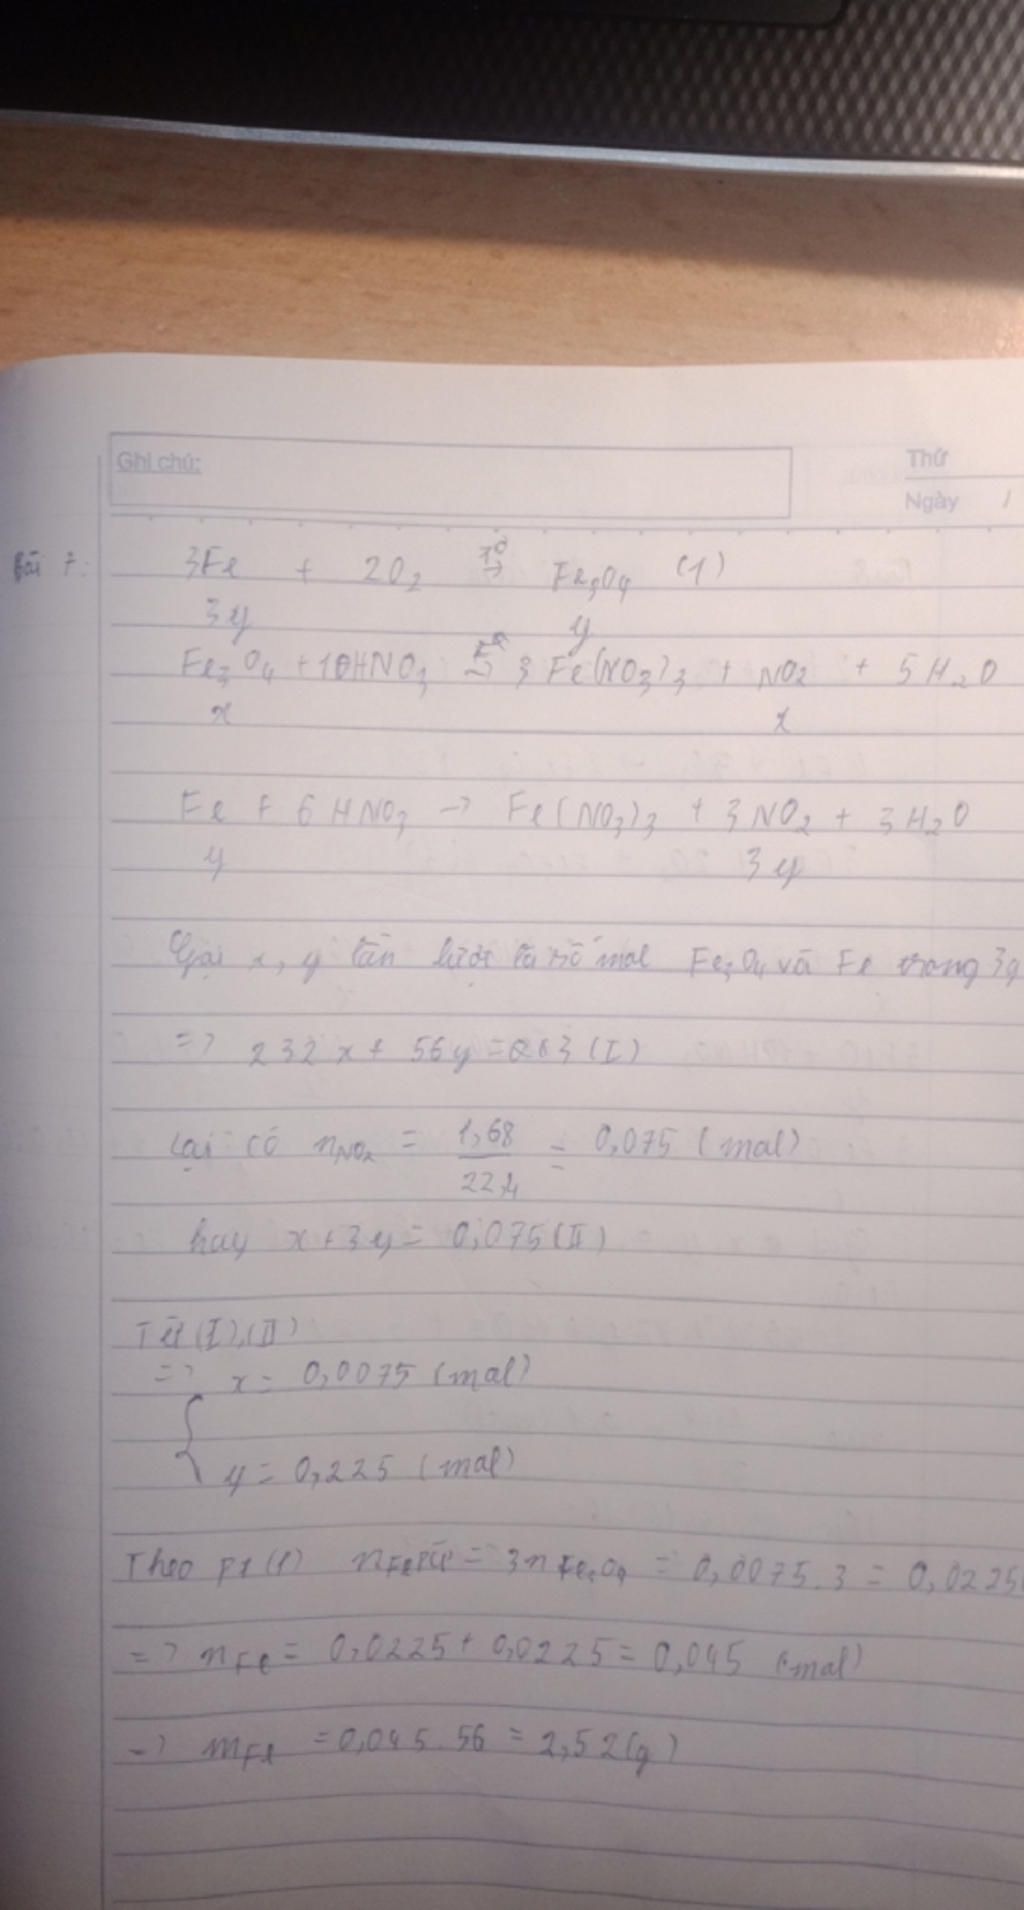 Ghi chú:
Thứ
Ngày
Bài 7:
3Fe + 2O₂ →(t⁰) Fe₃O₄ (1)
3y y
Fe₃O₄ + 10HNO₃ → 3Fe(NO₃)₃ + NO₂ + 5H₂O
x x
Fe + 6HNO₃ → Fe(NO₃)₃ + 3NO₂ + 3H₂O
y 3y
Gọi x, y lần lượt là số mol Fe₃O₄ và Fe trong 3g
=> 232x + 56y = 3 (I)
Lại có nNO₂ = 1,68/22,4 = 0,075 (mol)
hay x + 3y = 0,075 (II)
Từ (I), (II)
=> x = 0,0075 (mol)
y = 0,225 (mol)
Theo pt (1) nFe = 3nFe₃O₄ = 0,0075.3 = 0,0225
=> nFe = 0,0225 + 0,0225 = 0,045 (mol)
=> mFe = 0,045.56 = 2,52(g)